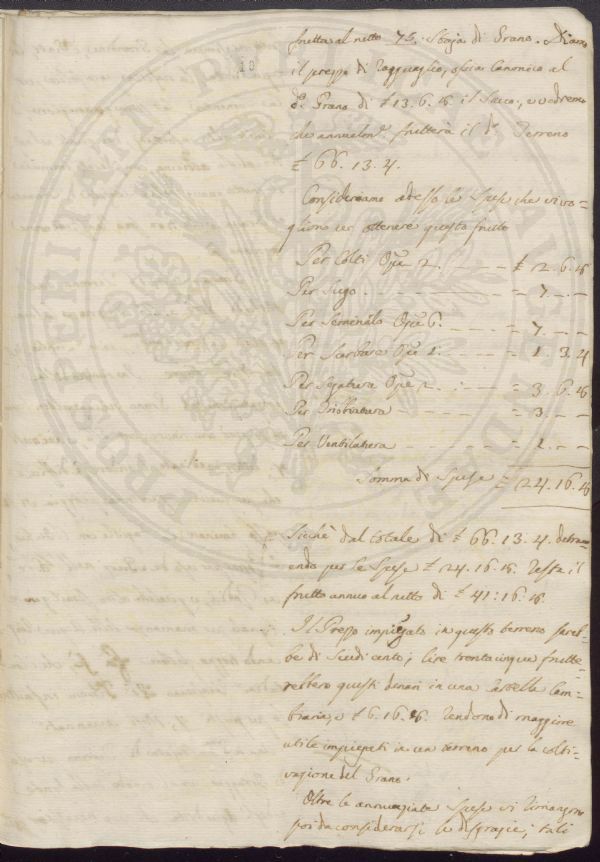 10
frutta al netto 75. Staja di Grano. Diamo
il prezzo di Ragguaglio, ossia Canonico al
do. Grano di £ 13. 6. 8. il Sacco, e vedremo
che annualmte. frutterà il do. Terreno
£ 66. 13. 4.
Consideriamo adesso le Spese che vi vo-
gliono per ottenere questo frutto
Per Colti Opre 2. £ 2. 6. 8
Per Sugo. = 7. — —
Per Seminarlo Opre 6. = 7. — —
Per Sarchiare Opre 1. = 1. 3. 4
Per Segatura Opre = 3. 6. 8
Per Tribbiatura = 3. — —
Per Ventilatura = 1. — —
Somma di Spese £ 24. 16. 8
Sicchè dal totale di £ 66. 13. 4. detra-
endo per le Spese £ 24. 16. 8. resta il
frutto annuo al netto di £ 41: 16. 8.
Il Prezzo impiegato in questo terreno sareb-
be di Scudi cento; lire trentacinque frutte-
rebbero questi denari in una Cartella Cam-
biaria, e £ 6. 16. 8. rendono di maggiore
utile impiegati in un terreno per la colti-
vazione del Grano.
Oltre le annunziate Spese vi rimangono
poi da considerarsi le disgrazie, tali
PROSPERITATI PUBLICAE AUGENDAE